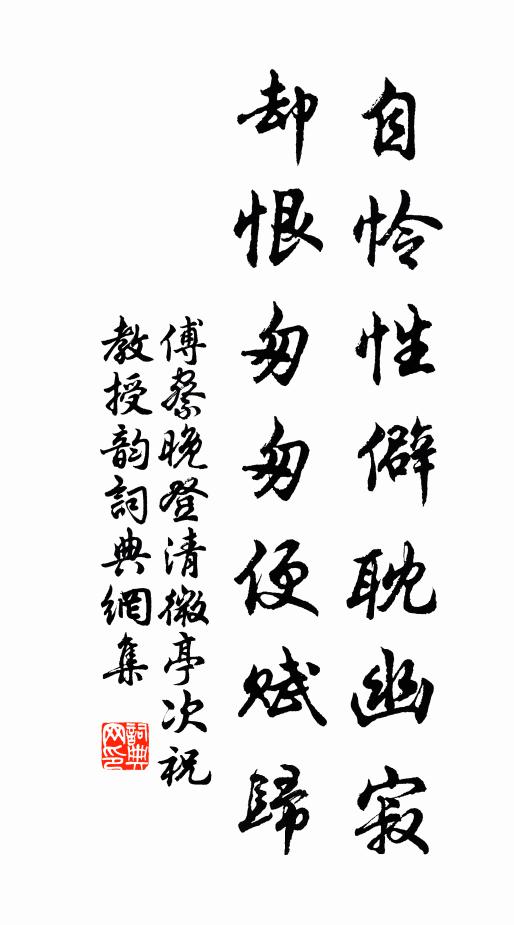 自怜性僻耽幽寂
却恨匆匆便赋歸
傅察晚登清微亭次祝
教授韵詞典網集
詞典网印